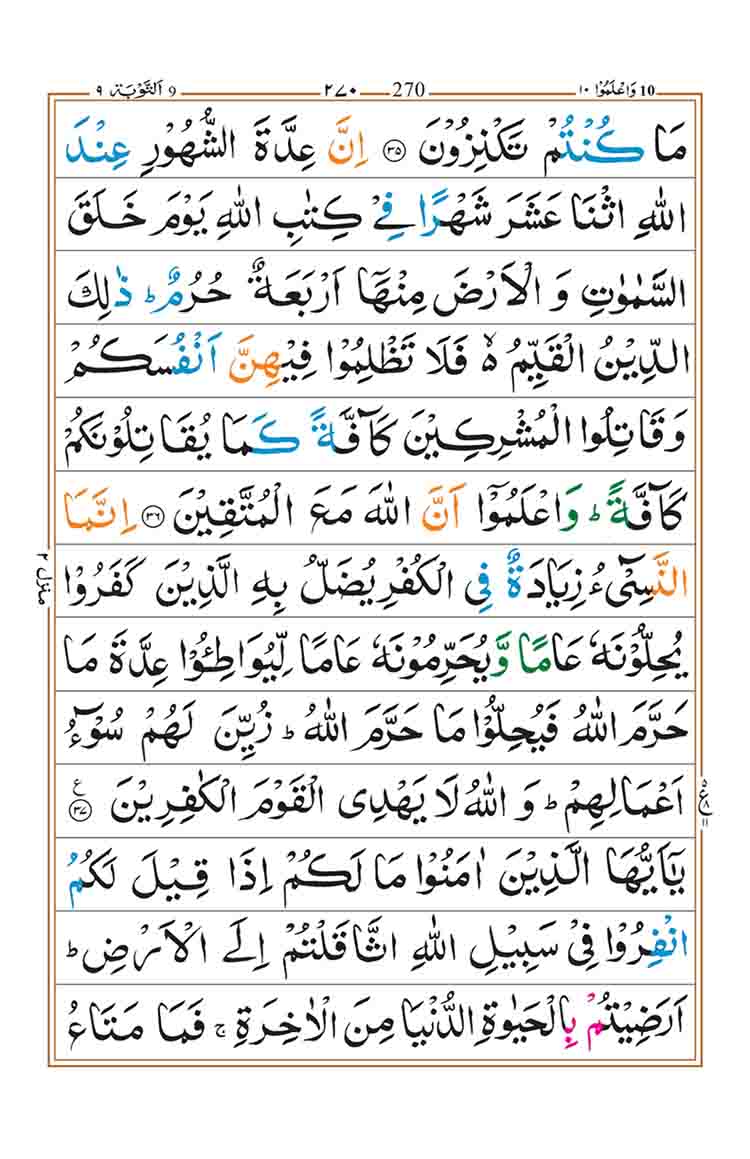 9 اَلتَّوْبَة ٩ ٢٧٠ 270 وَاعْلَمُوْٓا ١٠ 10
مَا كُنْتُمْ تَكْنِزُوْنَ ۝۳۵ اِنَّ عِدَّةَ الشُّهُوْرِ عِنْدَ
اللّٰهِ اثْنَا عَشَرَ شَهْرًا فِيْ كِتٰبِ اللّٰهِ يَوْمَ خَلَقَ
السَّمٰوٰتِ وَ الْاَرْضَ مِنْهَاۤ اَرْبَعَةٌ حُرُمٌ ؕ ذٰلِكَ
الدِّيْنُ الْقَيِّمُ ۙ۬ فَلَا تَظْلِمُوْا فِيْهِنَّ اَنْفُسَكُمْ
وَقَاتِلُوا الْمُشْرِكِيْنَ كَآفَّةً كَمَا يُقَاتِلُوْنَكُمْ
كَآفَّةً ؕ وَاعْلَمُوْۤا اَنَّ اللّٰهَ مَعَ الْمُتَّقِيْنَ ۝۳۶ اِنَّمَا
النَّسِيْٓءُ زِيَادَةٌ فِي الْكُفْرِ يُضَلُّ بِهِ الَّذِيْنَ كَفَرُوْا
يُحِلُّوْنَهٗ عَامًا وَّيُحَرِّمُوْنَهٗ عَامًا لِّيُوَاطِـُٔوْا عِدَّةَ مَا
حَرَّمَ اللّٰهُ فَيُحِلُّوْا مَا حَرَّمَ اللّٰهُ ؕ زُيِّنَ لَهُمْ سُوْٓءُ
اَعْمَالِهِمْ ؕ وَ اللّٰهُ لَا يَهْدِى الْقَوْمَ الْكٰفِرِيْنَ ۝۳۷ ع
يٰۤاَيُّهَا الَّذِيْنَ اٰمَنُوْا مَا لَكُمْ اِذَا قِيْلَ لَكُمُ
انْفِرُوْا فِيْ سَبِيْلِ اللّٰهِ اثَّاقَلْتُمْ اِلَى الْاَرْضِ ؕ
اَرَضِيْتُمْ بِالْحَيٰوةِ الدُّنْيَا مِنَ الْاٰخِرَةِ ۚ فَمَا مَتَاعُ
منزل ٢